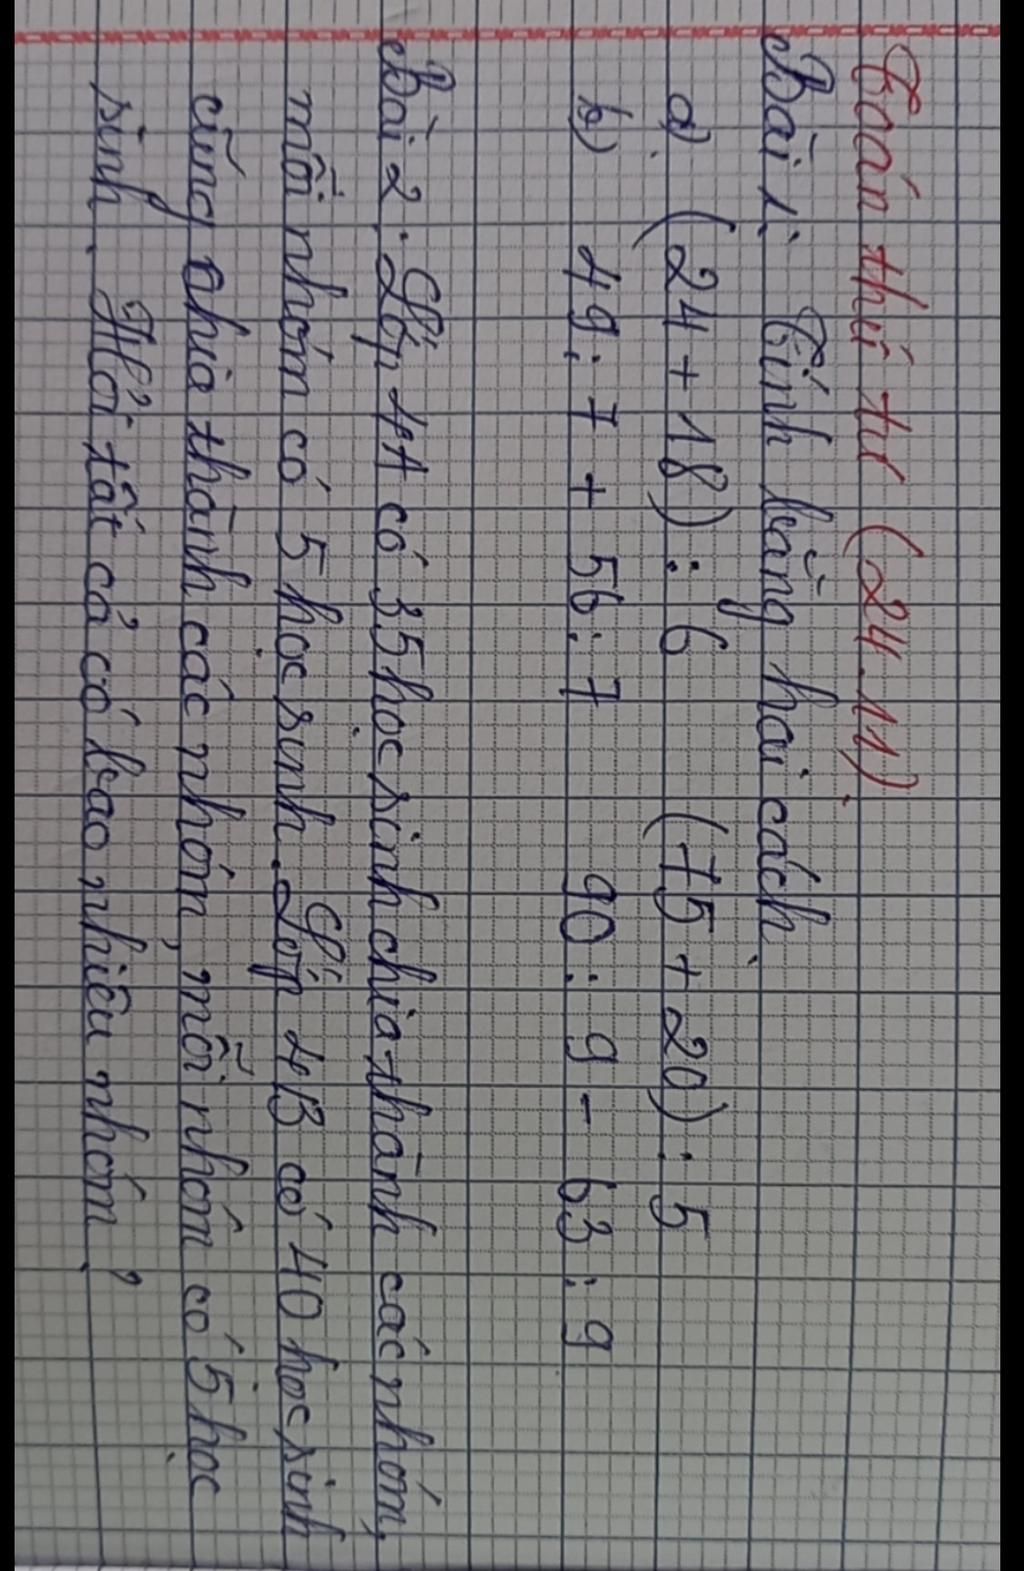 Toán thứ tư (24.11)
Bài 1: Tính bằng hai cách.
a) (24 + 18) : 6 (75 + 20) : 5
b) 49 : 7 + 56 : 7 90 : 9 - 63 : 9
Bài 2: Lớp 4A có 35 học sinh chia thành các nhóm,
mỗi nhóm có 5 học sinh. Lớp 4B có 40 học sinh
cũng chia thành các nhóm, mỗi nhóm có 5 học
sinh. Hỏi tất cả có bao nhiêu nhóm?